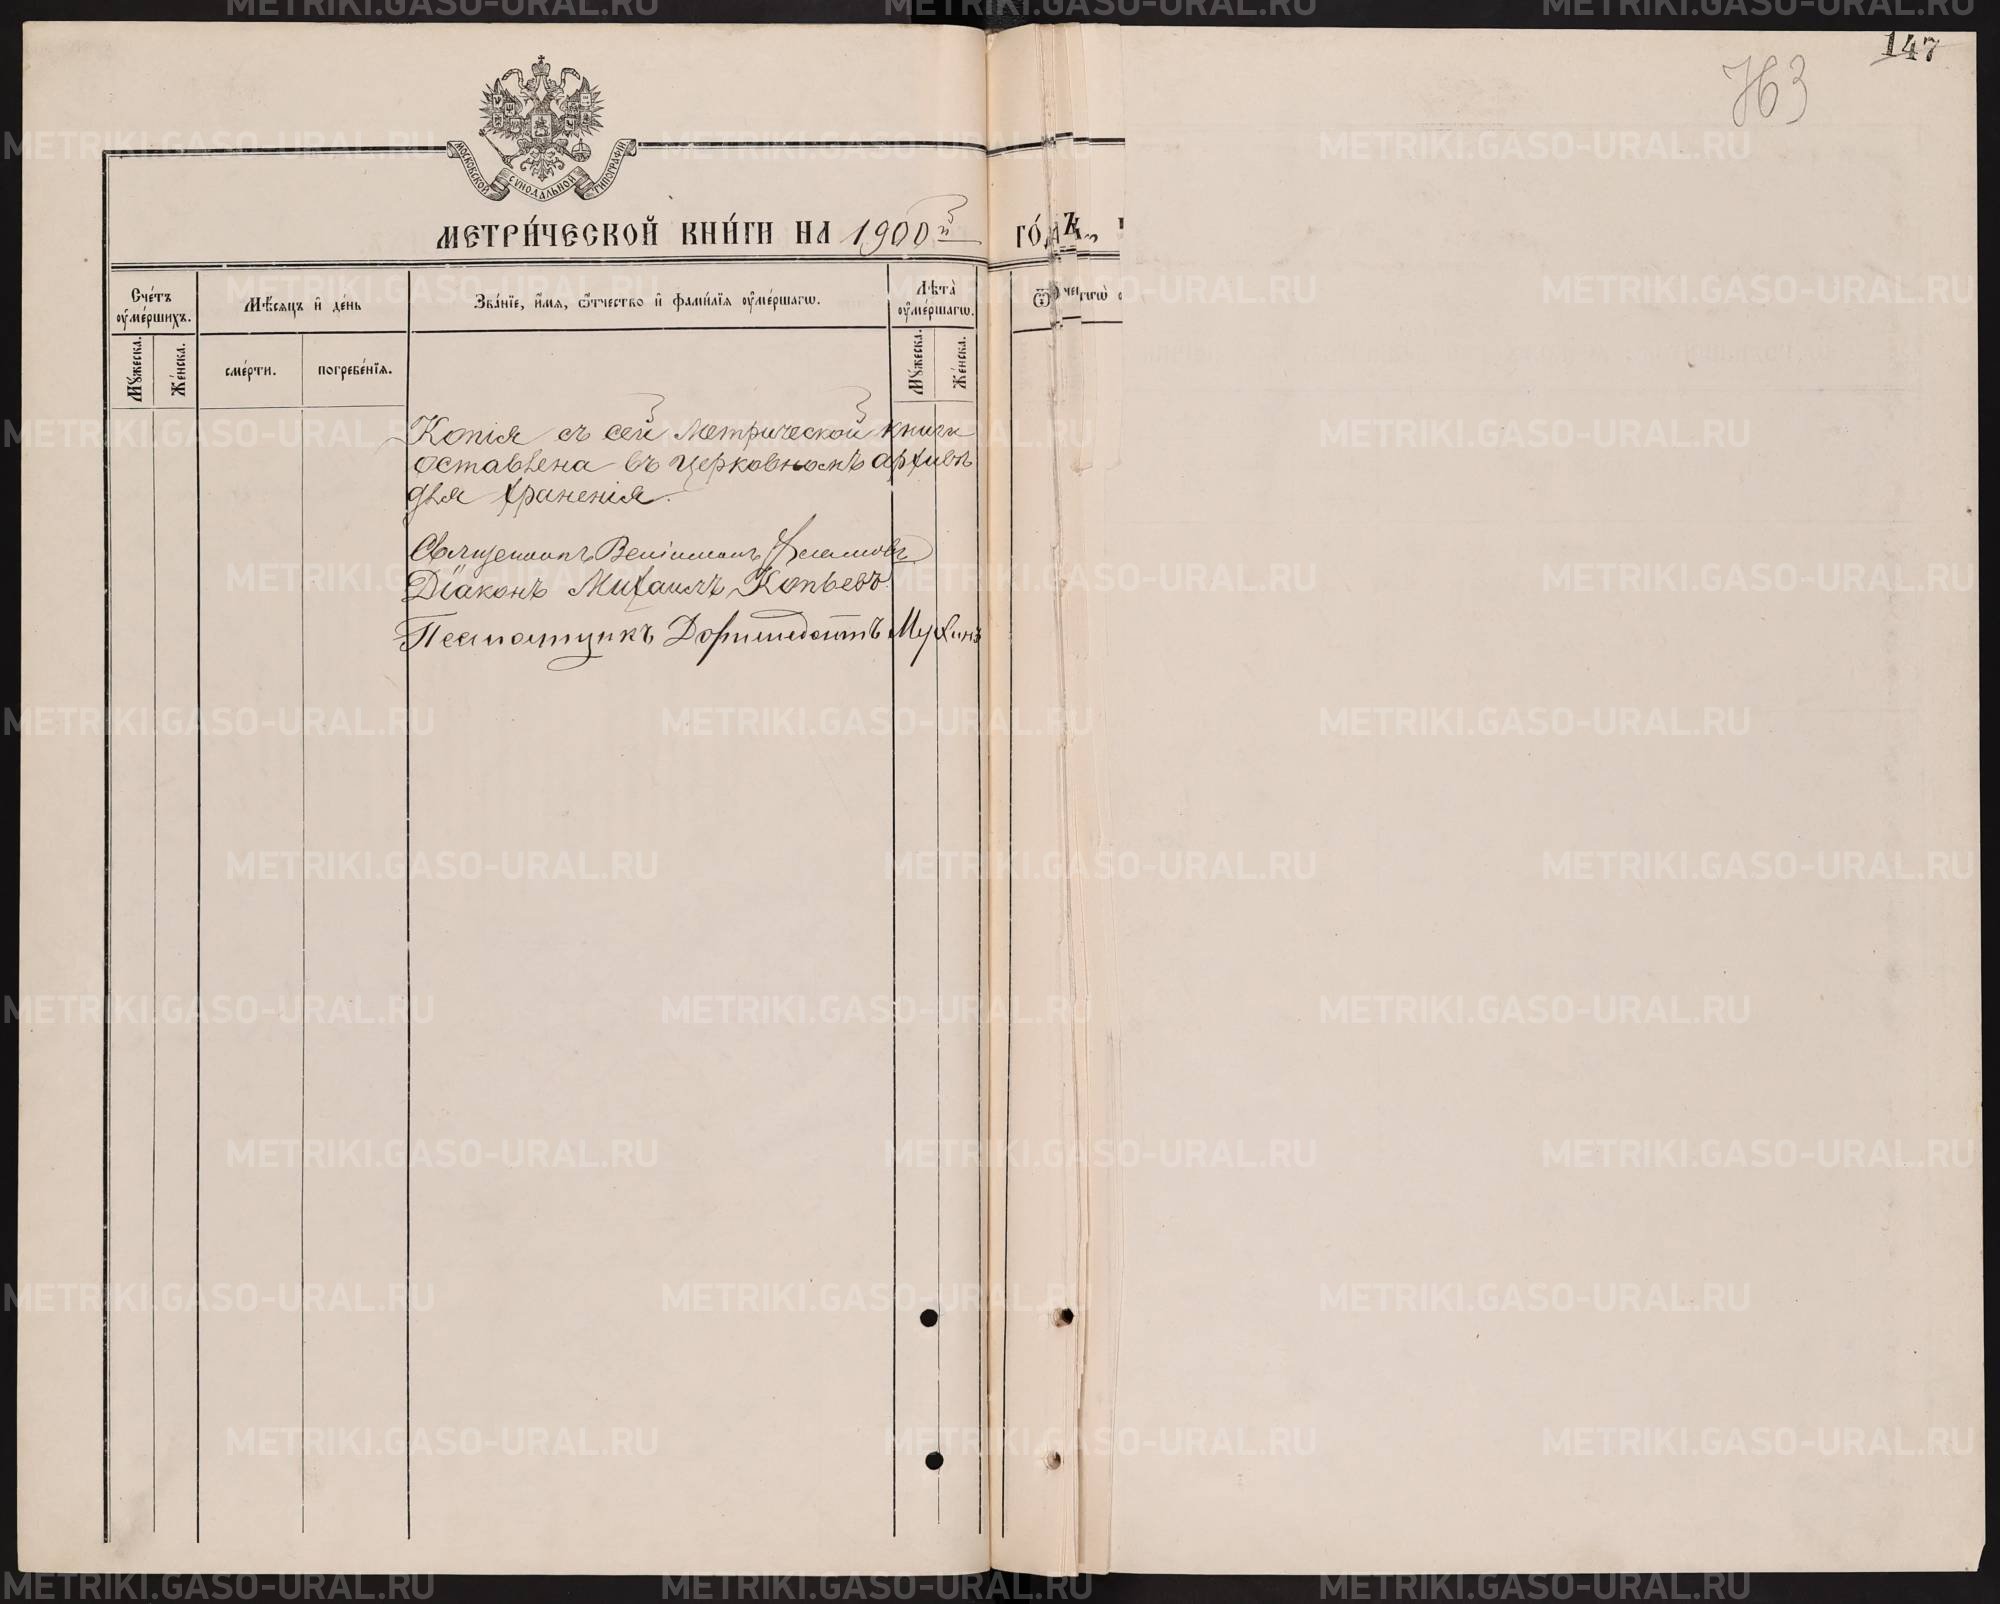 147
763
МОСКОВСКОЙ СѴНОДАЛЬНОЙ ТИПОГРАФІИ
МЕТРИ́ЧЕСКОЙ КНИ́ГИ НА 1900й ГО́
Сче́тъ ᲂу҆ме́ршихъ.
Мѣ́сѧцъ и҆ де́нь
Зва́нїе, и҆́мѧ, ѻ҆́тчество и҆ фами́лїѧ ᲂу҆ме́ршагѡ.
Лѣ́та ᲂу҆ме́ршагѡ.
Мꙋ́жеска.
Же́нска.
сме́рти.
погребе́нїѧ.
Мꙋ́жеска.
Же́нска.
Копія съ сей метрической книги
оставлена въ церковномъ архивѣ
для храненія.
Священникъ Веніаминъ
Діаконъ Михаилъ Копьевъ
Псаломщикъ Доримедонтъ Мухинъ
METRIKI.GASO-URAL.RU